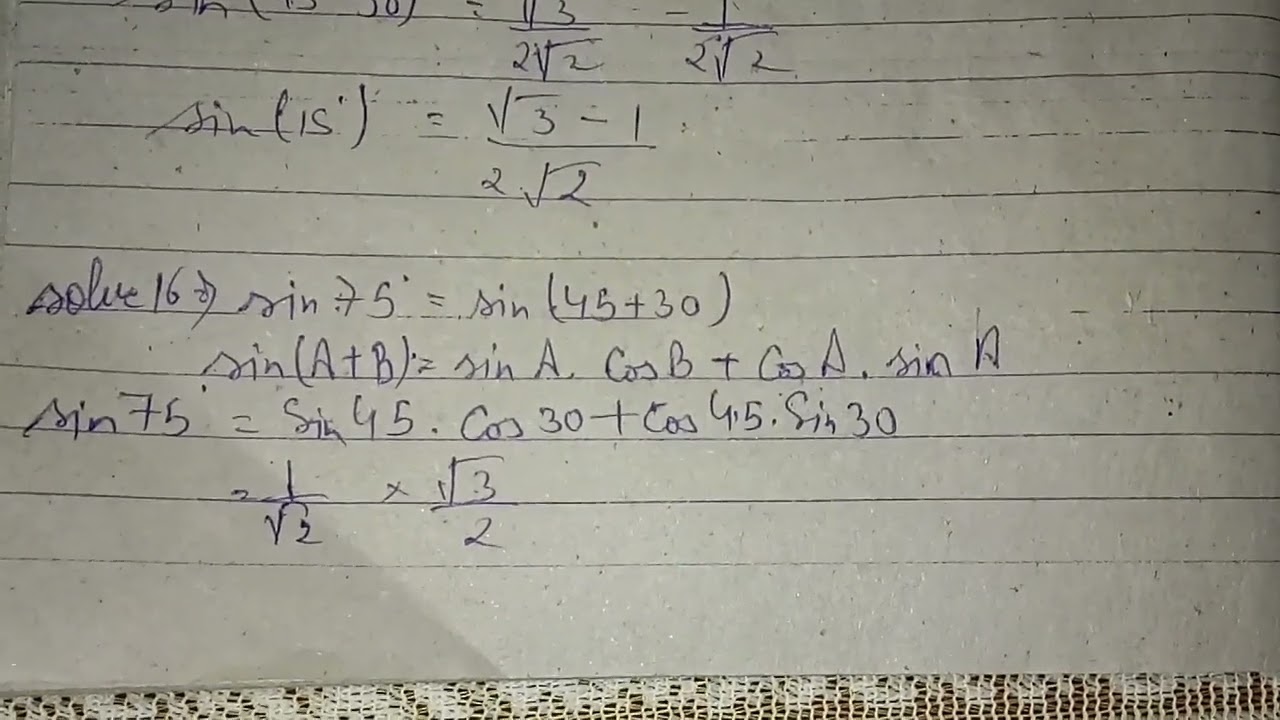 sin(45-30) = √3/2√2 - 1/2√2
sin(15°) = √3-1/2√2
solve 16 ⇒ sin 75° = sin(45+30)
sin(A+B) = sin A. Cos B + Cos A. sin A
sin 75° = Sin 45. Cos 30 + Cos 45. Sin 30
= 1/√2 × √3/2